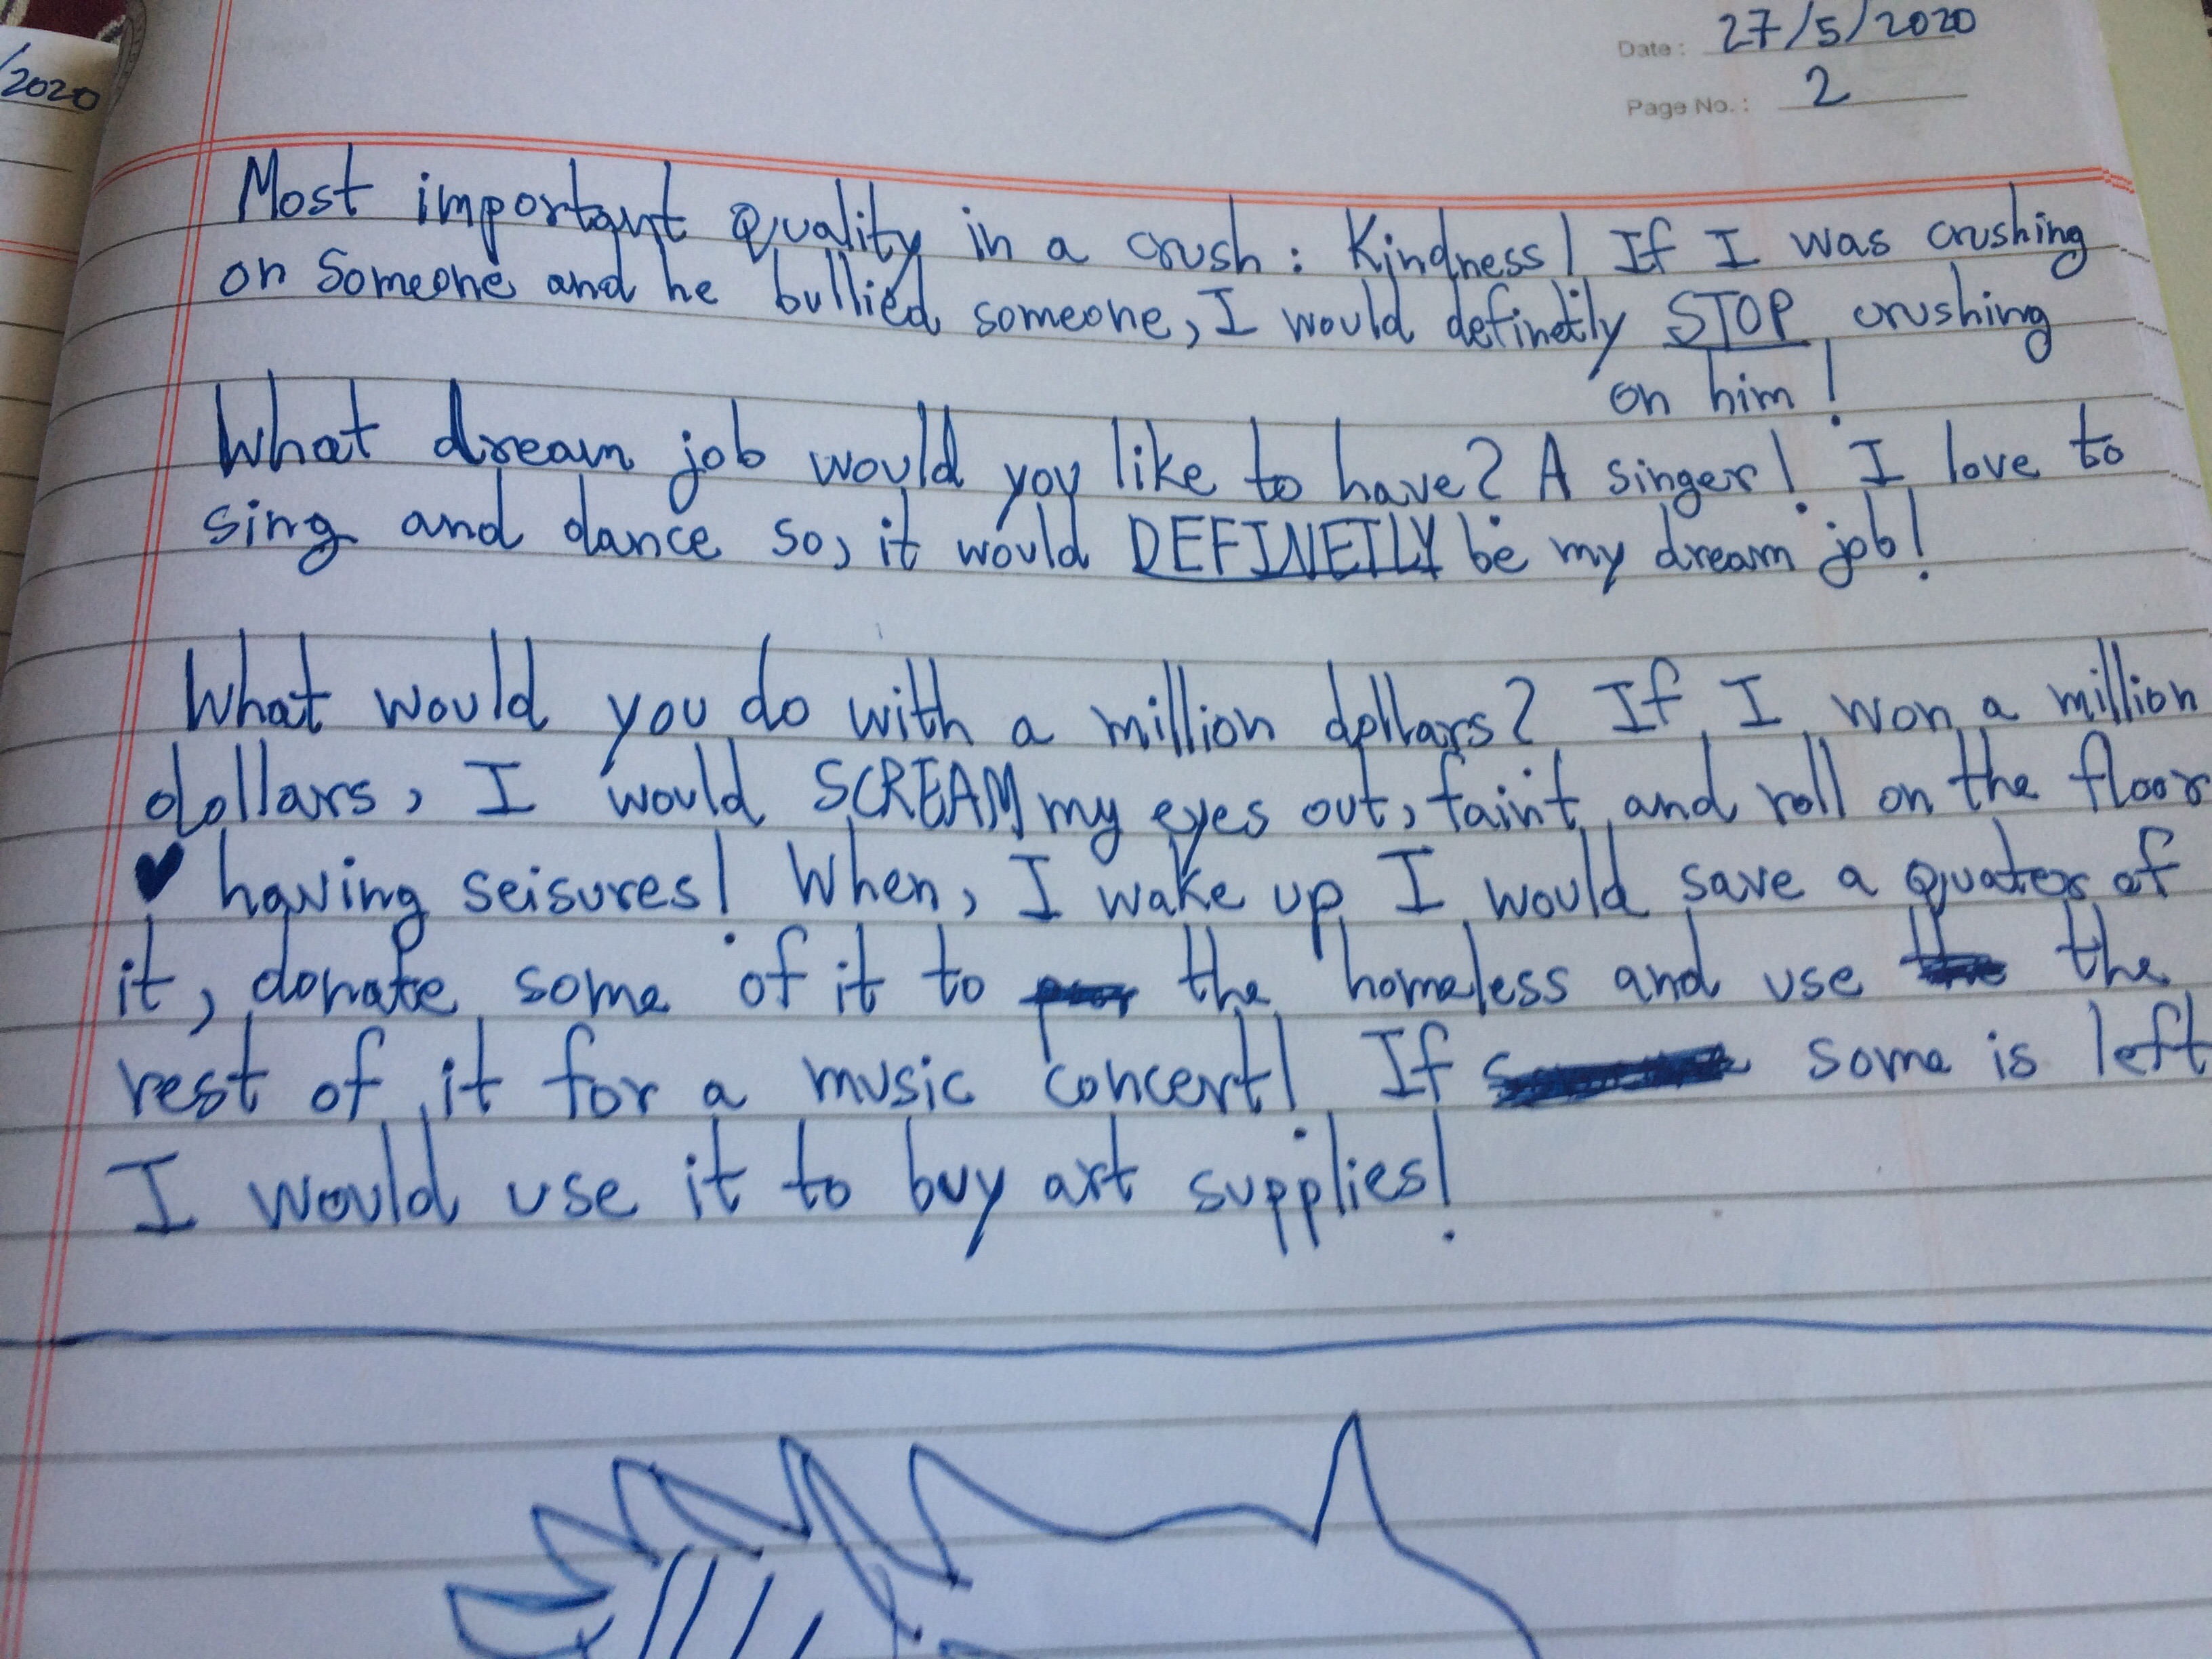 /2020
Date: 27/5/2020
Page No.: 2
Most important Quality in a crush: Kindness! If I was crushing
on Someone and he bullied someone, I would definetily STOP crushing
on him!
What dream job would you like to have? A singer! I love to
sing and dance so, it would DEFINETILY be my dream job!
What would you do with a million dollars? If I won a million
dollars, I would SCREAM my eyes out, faint and roll on the floor
♥ having seisures! When, I wake up I would save a quater of
it, donate some of it to the homeless and use the
rest of it for a music concert! If some is left
I would use it to buy art supplies!